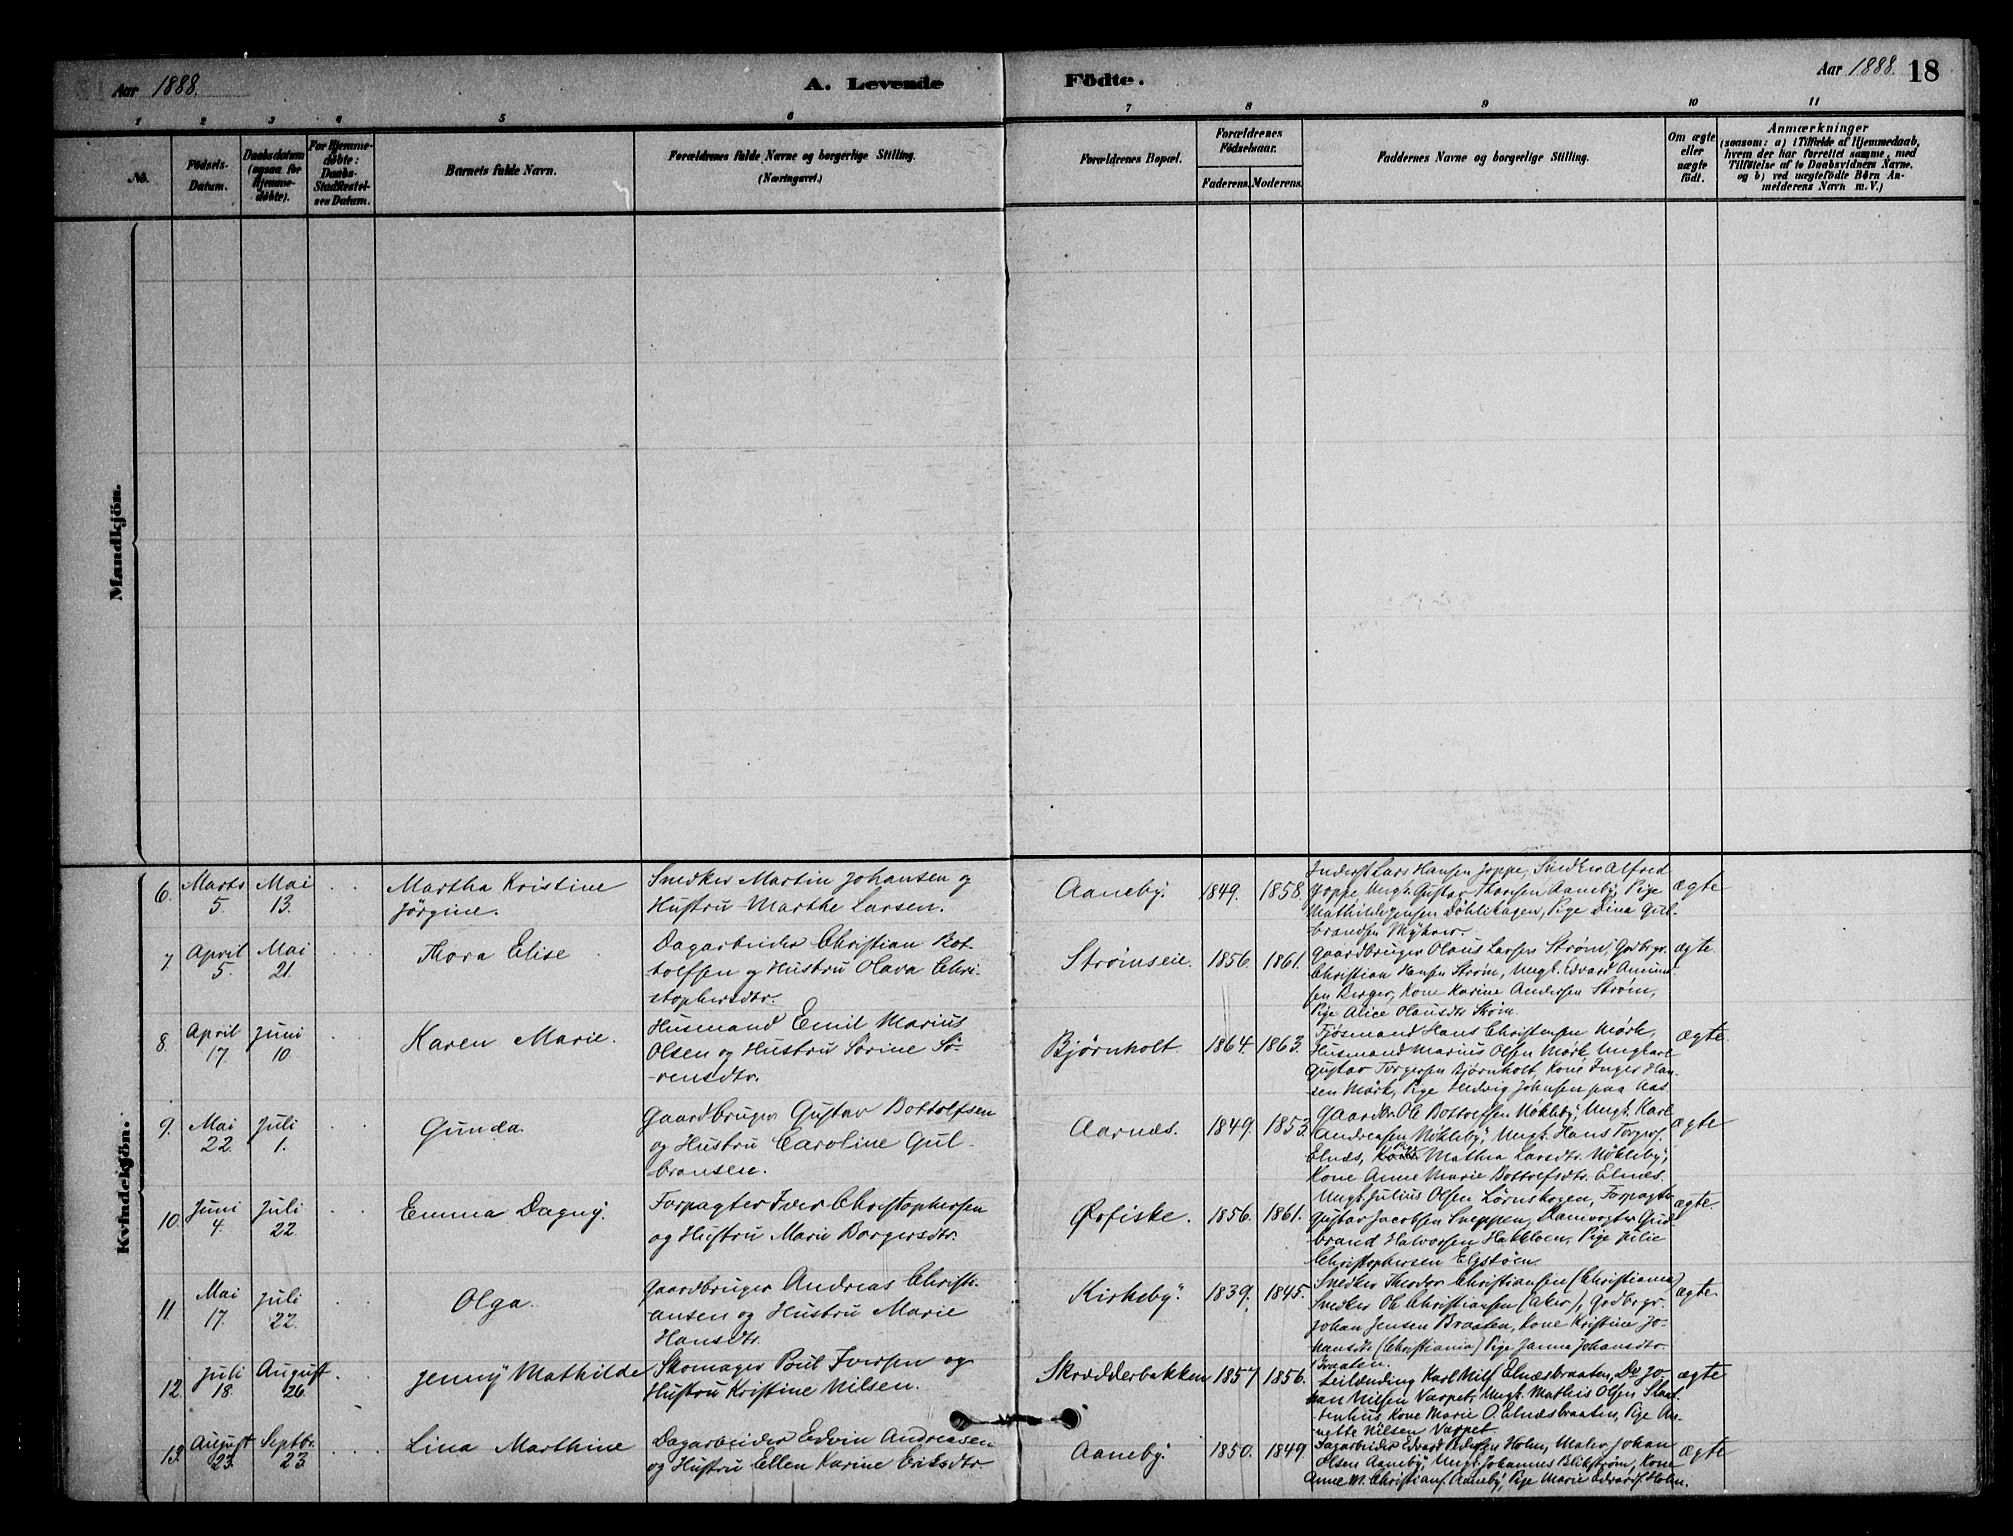 Aar 1888.
A. Levende
Födte.
Aar 1888. 18
1 2 3 4 5 6 7 8 9 10 11
No.
Födsels-
Datum.
Daabsdatum
(ogsaa for
Hjemme-
døbte).
For Hjemme-
døbte:
Daabs-
Stadfæstel-
ses Datum.
Barnets fulde Navn.
Forældrenes fulde Navne og borgerlige Stilling.
(Næringsvei.)
Forældrenes Bopæl.
Forældrenes
Födselsaar.
Faderens. Moderens.
Faddernes Navne og borgerlige Stilling.
Om ægte
eller
uægte
født.
Anmærkninger
(saasom: a) i Tilfælde af Hjemmedaab,
hvem der har forrettet samme, med
Tilföielse af to Daabsvidners Navne.
og b) ved uægtefödte Børn An-
melderens Navn m. V.)
Mandkjön.
Kvindekjön.
6. Marts 5. Mai 13.
Martha Kristine
Jörgine.
Snedker Martin Johansen og
Hustru Marthe Larsen.
Aaneby. 1849. 1858.
Inderst Lars Hansen Joppe, Snedker Alfred
Joppe, Ungk. Gustav Thorsen Aaneby, Pige
Mathilde Jensen Döhlihagen, Pige Dina Gul-
brandsen
ægte
7. April 5. Mai 21.
Thora Elise
Dagarbeider Christian Bot-
tolfsen og Hustru Olava Chri-
stophersdtr.
Strømseie. 1856. 1861.
Gaardbruger Olaus Larsen Strøm, Gadbrgr.
Christian Hansen Strøm, Ungk. Edvard Amund-
sen Berger, Kone Karine Andersen Strøm,
Pige Alice Olausdtr Strøm.
ægte.
8. April 17. Juni 10.
Karen Marie.
Husmand Emil Marius
Olsen og Hustru Sørine Sö-
rensdtr.
Bjørnholt. 1864. 1863.
Fjøsmand Hans Christensen Mørk,
Husmand Marius Olsen Mørk, Ungkarl
Gustav Torgersen Bjørnholt, Kone Inger Han-
sen Mørk, Pige Hedvig Johnsen paa Aas
ægte.
9. Mai 22. Juli 1.
Gunda.
Gaardbruger Gustav Bottolfsen
og Hustru Caroline Gul-
bransen.
Aarnes. 1849. 1853.
Gaardbr. Ole Bottolfsen Mökleby, Ungk. Karl
Andreasen Mökleby, Ungk. Hans Torgers.
Elnæs, Mathea Larsdtr. Mökleby,
Kone Anne Marie Bottolfsdtr. Elnæs.
ægte
10. Juni 4. Juli 22.
Emma Dagny.
Forpagter Iver Christophersen
og Hustru Marie Borgersdtr.
Ørfiske. 1856. 1861.
Ungk. Julius Olsen Lørnskogen, Forpagter
Gustav Jacobsen Sneppen, Damvogter Gud-
brand Halvorsen Hakkloen, Pige Julie
Christophersen Elgstøen.
ægte.
11. Mai 17. Juli 22.
Olga.
Gaardbruger Andreas Christi-
ansen og Hustru Marie
Hansdtr.
Kirkeby. 1839. 1845.
Snedker Theodor Christiansen (Christiania)
Snedker Ole Christiansen (Aker), Gadbrgr.
Johan Jensen Braaten, Kone Kristine Jo-
hansdtr (Christiania) Pige Janna Johansdtr
Braaten.
ægte.
12. Juli 18. August 26.
Jenny Mathilde
Skomager Poul Iversen og
Hustru Kristine Nilsen.
Skrædderbakken 1857 1856.
Leilænding Karl Nils. Elnæsbraaten, Do Jo-
han Nilsen Varpet, Ungk. Mathis Olsen Slaat-
tenhus Kone Marie O. Elnæsbraaten, Pige An-
nette Nilsen Varpet.
ægte
13. August 23. Septbr. 23.
Lina Marthine
Dagarbeider Edvin Andreasen
og Hustru Ellen Karine Eriksdtr
Aaneby. 1850. 1849.
Dagarbeider Edvard Pedersen Holm, Maler Johan
Olsen Aaneby, Ungk. Johannes Blikstrøm, Kone
Anne M. Christians. Aaneby, Pige Marie Edvards. Holm.
ægte